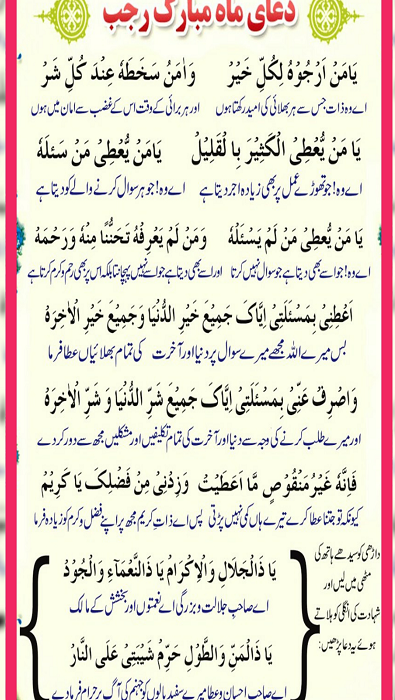 دعای ماہ مبارک رجب
یَامَنْ اَرْجُوْهُ لِکُلِّ خَیْرُ وَاٰمَنُ سَخَطَهٗ عِنْدَ کُلِّ شَرُ
اے وہ ذات جس سے ہر بھلائی کی امید رکھتا ہوں اور ہر برائی کے وقت اس کے غضب سے امان میں ہوں
یَا مَنْ یُّعْطِیْ الْکَثِیْرَ بِا لْقَلِیْلُ یَامَنْ یُّعْطِیْ مَنْ سَئَلَهٗ
اے وہ! جو تھوڑے عمل پر بھی زیادہ اجر دیتا ہے اے وہ! جو ہر سوال کرنے والے کو دیتا ہے
یَا مَنْ یُّعْطِیْ مَنْ لَمْ یَسْئَلْهُ وَمَنْ لَمْ یَعْرِفْهُ تَحَنُّنًا مِنْهُ وَرَحْمَهْ
اے وہ! جو اسے بھی دیتا ہے جو سوال نہیں کرتا اور اسے بھی دیتا ہے جو اسے نہیں پہچانتا بلکہ اس پر بھی رحم و کرم کرتا ہے
اَعْطِنِیْ بِمَسْئَلَتِیْ اِیَّاکَ جَمِیْعَ خَیْرِ الدُّنْیَا وَجَمِیْعَ خَیْرِ الْاٰخِرَهْ
بس میرے اللہ مجھے میرے سوال پر دنیا اور آخرت کی تمام بھلائیاں عطا فرما
وَاصْرِفْ عَنِّیْ بِمَسْئَلَتِیْ اِیَّاکَ جَمِیْعَ شَرِّ الدُّنْیَا وَ شَرِّ الْاٰخِرَهْ
اور میرے طلب کرنے کی وجہ سے دنیا اور آخرت کی تمام تکلیفیں اور مشکلیں مجھ سے دور کر دے
فَاِنَّهٗ غَیْرُ مَنْقُوْصٍ مَّا اَعْطَیْتُ وَزِدْنِیْ مِنْ فَضْلِکَ یَا کَرِیْمُ
کیونکہ تو جتنا عطا کرے تیرے ہاں کمی نہیں پڑتی پس اے ذاتِ کریم مجھ پر اپنے فضل و کرم کو زیادہ فرما
داڑھی کو سیدھے ہاتھ کی
مٹھی میں لیں اور
شہادت کی انگلی کو ہلاتے
ہوئے یہ دعا پڑھیں:
یَا ذَالْجَلَالِ وَالْاِکْرَامُ یَا ذَالنَّعْمَآءِ وَالْجُوْدُ
اے صاحب جلالت و بزرگی اے نعمتوں اور بخشش کے مالک
یَا ذَالْمَنِّ وَالطَّوْلِ حَرِّمْ شَیْبَتِیْ عَلَی النَّارُ
اے صاحب احسان و عطا میرے سفید بالوں کو جہنم کی آگ پر حرام فرما دے